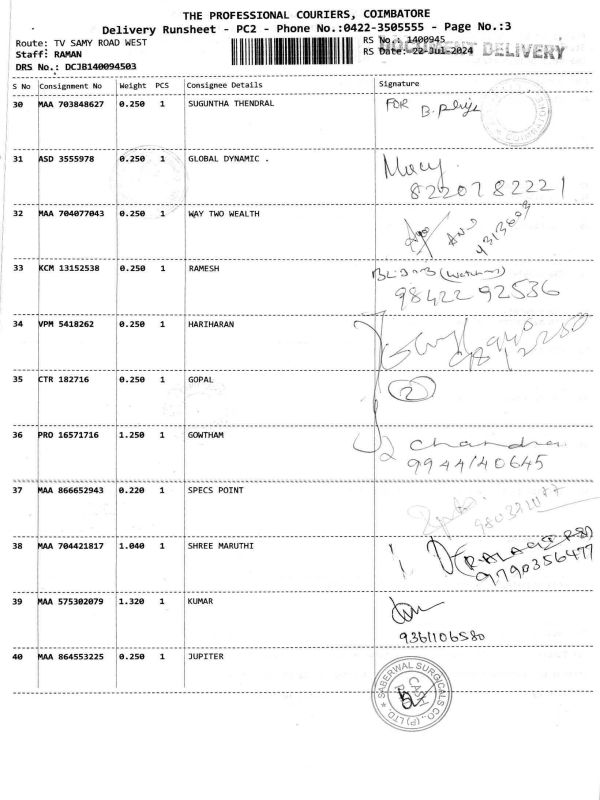 THE PROFESSIONAL COURIERS, COIMBATORE
Delivery Runsheet - PC2 - Phone No.:0422-3505555 - Page No.:3
Route: TV SAMY ROAD WEST RS No.: 1400945
Staff: RAMAN RS Date: 22-Jul-2024 DOCUMENT DELIVERY
DRS No.: DCJB140094503
S No Consignment No Weight PCS Consignee Details Signature
30 MAA 703848627 0.250 1 SUGUNTHA THENDRAL FOR B.
31 ASD 3555978 0.250 1 GLOBAL DYNAMIC .
8220782221
32 MAA 704077043 0.250 1 WAY TWO WEALTH
33 KCM 13152538 0.250 1 RAMESH
98422 92536
34 VPM 5418262 0.250 1 HARIHARAN
35 CTR 182716 0.250 1 GOPAL 2
36 PRO 16571716 1.250 1 GOWTHAM Chandra
9944140645
37 MAA 866652943 0.220 1 SPECS POINT
38 MAA 704421817 1.040 1 SHREE MARUTHI
9790356477
39 MAA 575302079 1.320 1 KUMAR
9361106580
40 MAA 864553225 0.250 1 JUPITER
SABERWAL SURGICALS CO., (P) LTD.